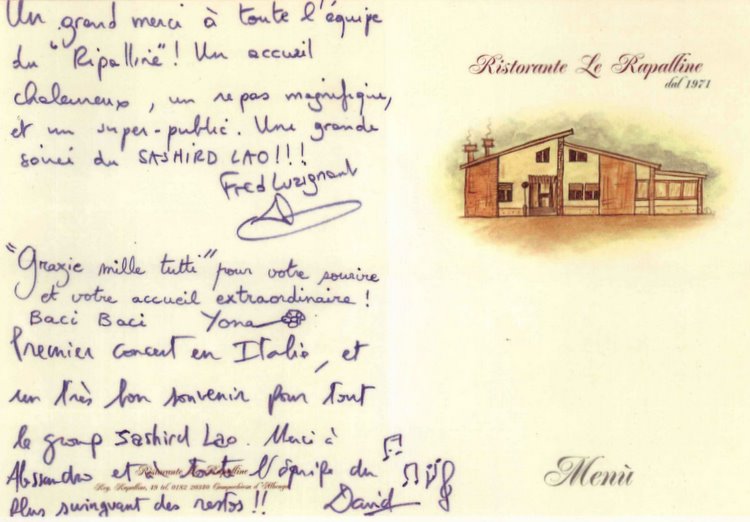 Un grand merci à toute l'équipe
du "Ripalline"! Un accueil
chaleureux, un repas magnifique,
et un super-public. Une grande
soirée du SASHIRD LAO!!!
Fred Luzignant
"Grazie mille tutti" pour votre sourire
et votre accueil extraordinaire!
Baci Baci Yona
Premier concert en Italie, et
un très bon souvenir pour tout
le group Sashird Lao. Merci à
Alessandro et à toute l'équipe du
plus swinguant des restos!!
David
Ristorante Le Rapalline
Reg. Rapalline, 49 tel. 0182 20310 Campochiesa d'Albenga
Ristorante Le Rapalline
dal 1971
Menù